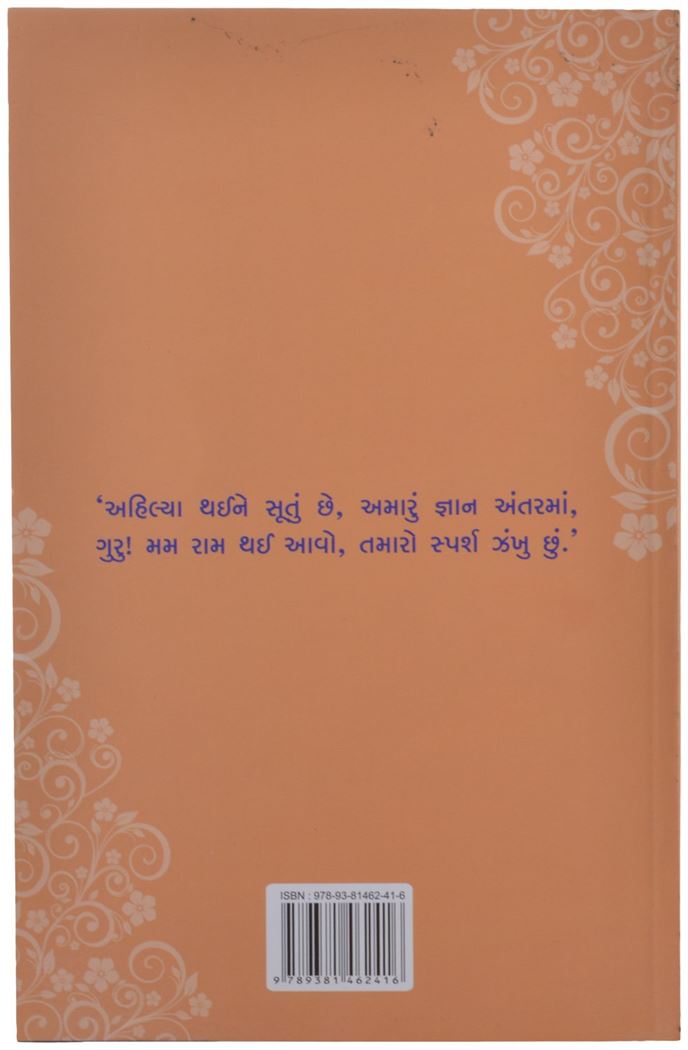 ‘અહિલ્યા થઈને સૂતું છે, અમારું જ્ઞાન અંતરમાં,
ગુરુ! મમ રામ થઈ આવો, તમારો સ્પર્શ ઝંખુ છું.’
ISBN : 978-93-81462-41-6
9 789381 462416